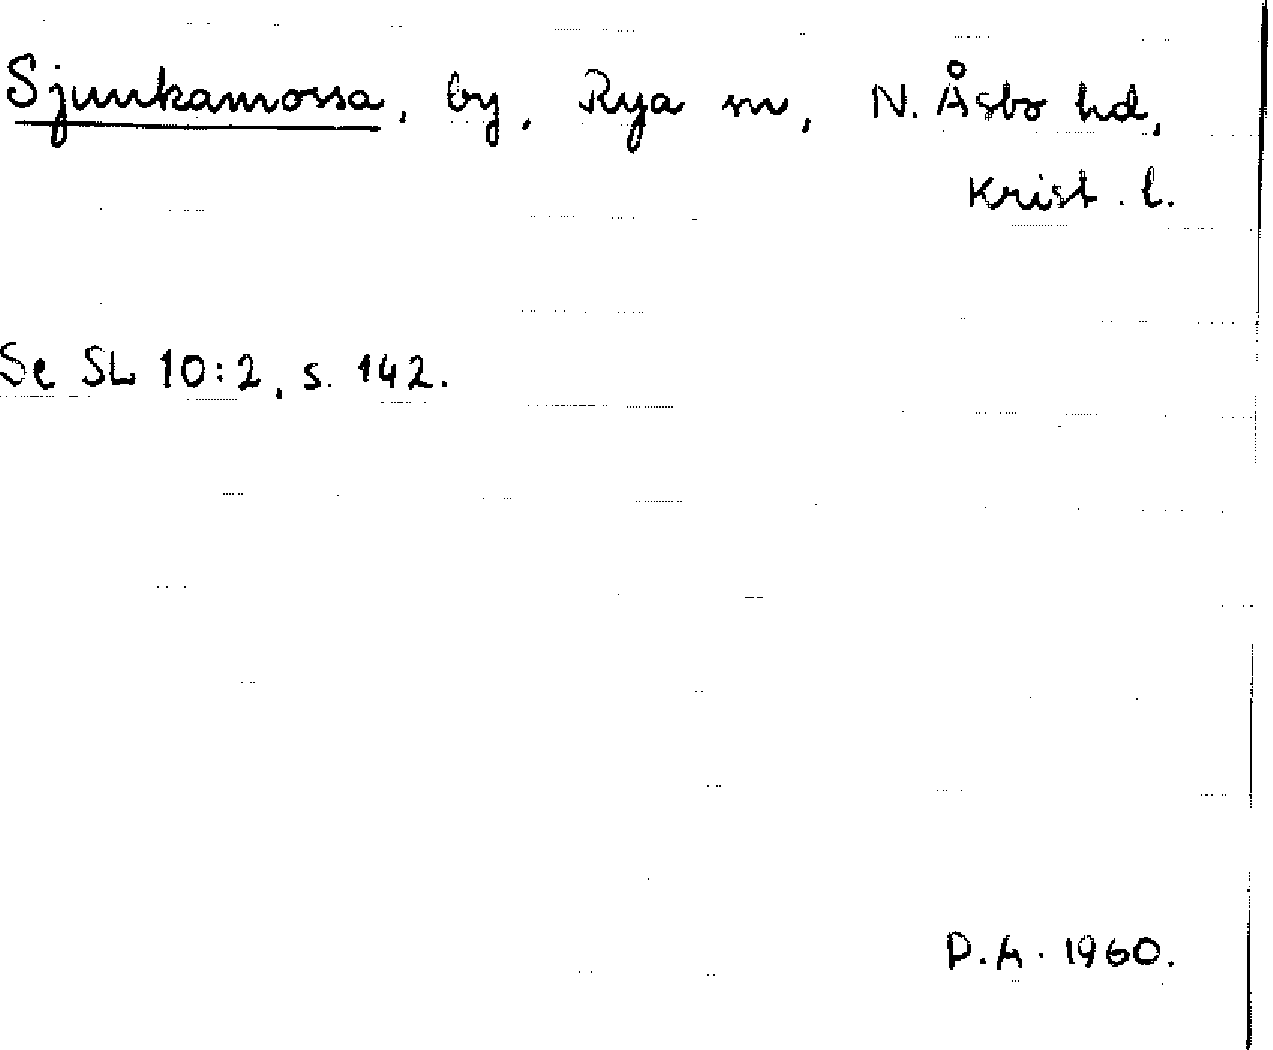 Sjunkamossa, by, Rya sn, N. Åsbo hd,
Krist. l.
Se SL 10:2, s. 142.
P.A. 1960.